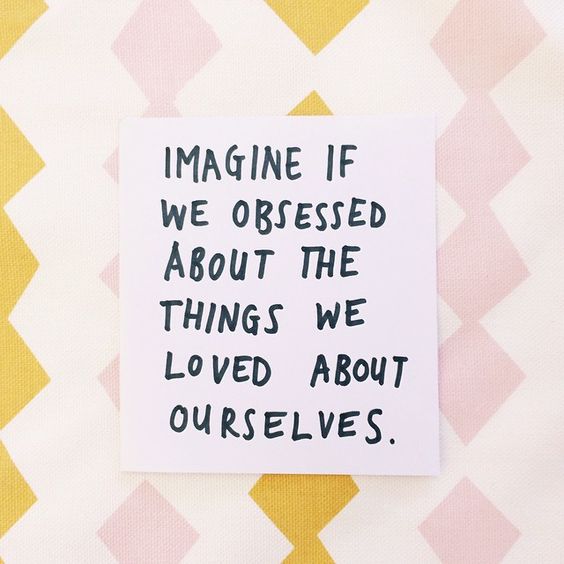 IMAGINE IF
WE OBSESSED
ABOUT THE
THINGS WE
LOVED ABOUT
OURSELVES.